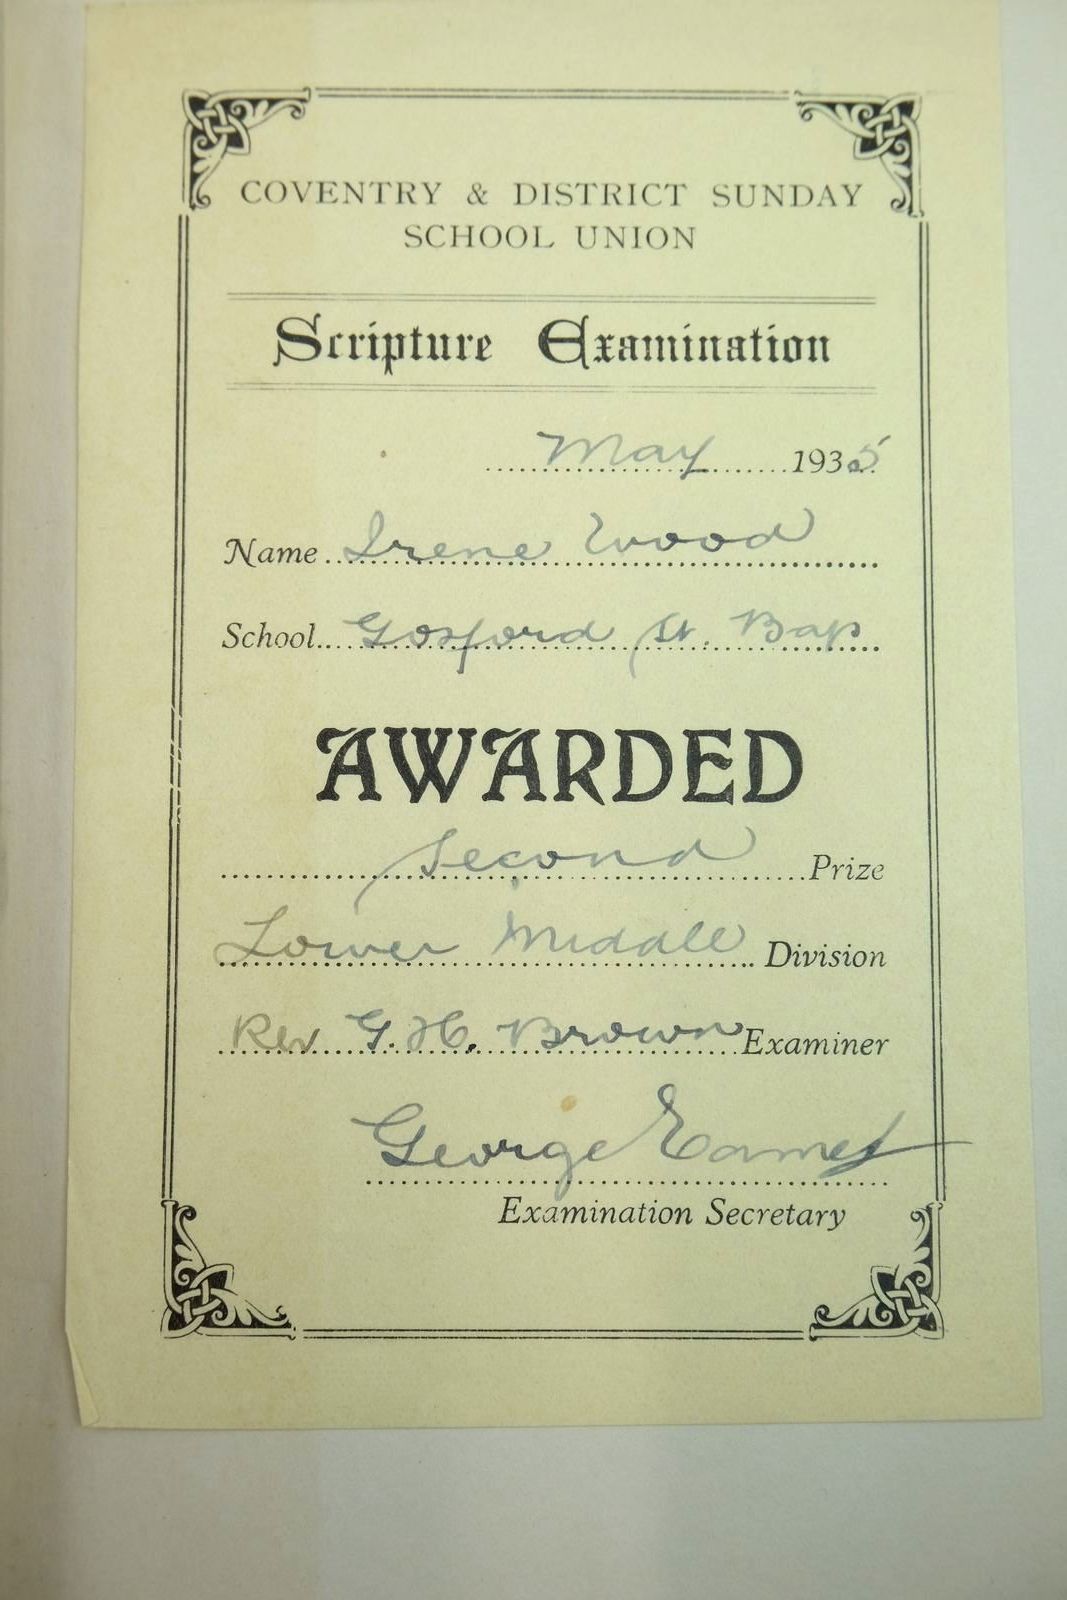 COVENTRY & DISTRICT SUNDAY
SCHOOL UNION
Scripture Examination
May 1935
Name Irene Wood
School Gosford St. Bap
AWARDED
Second Prize
Lower Middle Division
Rev G. H. Brown Examiner
George Eames
Examination Secretary